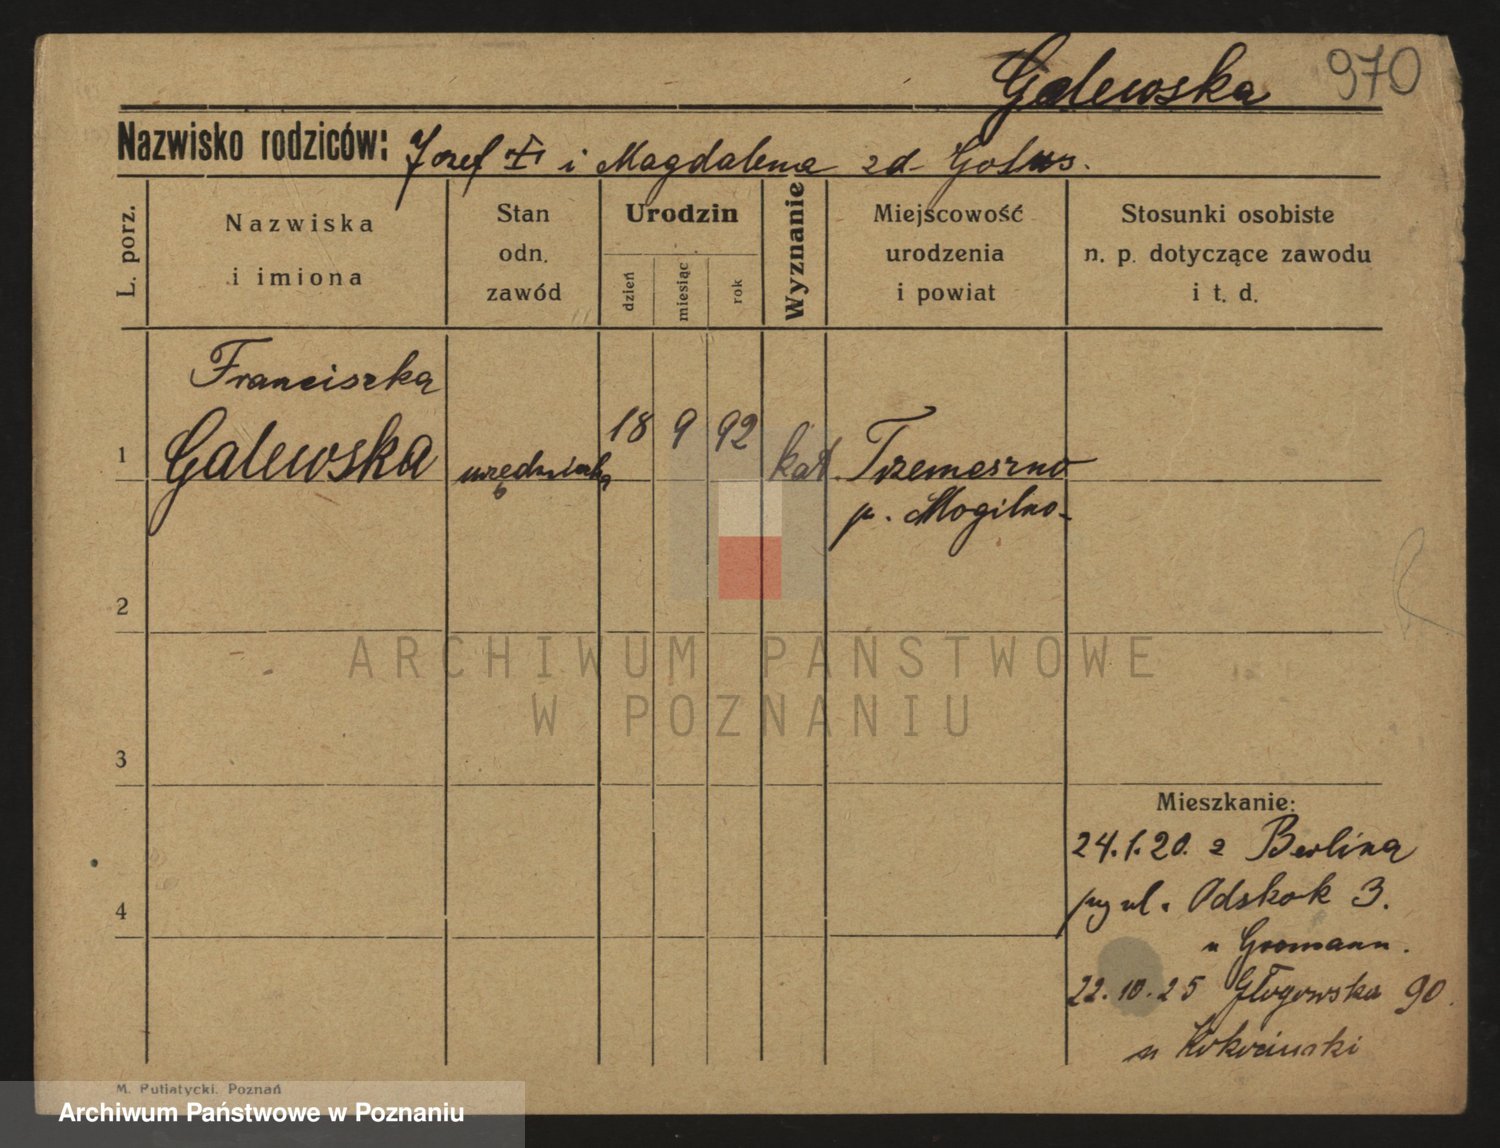 Galewska 970
Nazwisko rodziców: Jozef i Magdalena zd Golus.
L. porz.
Nazwiska
i imiona
Stan
odn.
zawód
Urodzin
dzień
miesiąc
rok
Wyznanie
Miejscowość
urodzenia
i powiat
Stosunki osobiste
n. p. dotyczące zawodu
i t. d.
Franciszka
1 Galewska urzędniczka 18 9 92 kat. Trzemeszno
p. Mogilno
2
ARCHIWUM PAŃSTWOWE
W POZNANIU
3
Mieszkanie:
24.1.20. z Berlina
4 ul. Odskok 3.
u Gromann.
22.10.25 Głogowska 90.
u Kokocinski
M. Putiatycki. Poznań
Archiwum Państwowe w Poznaniu